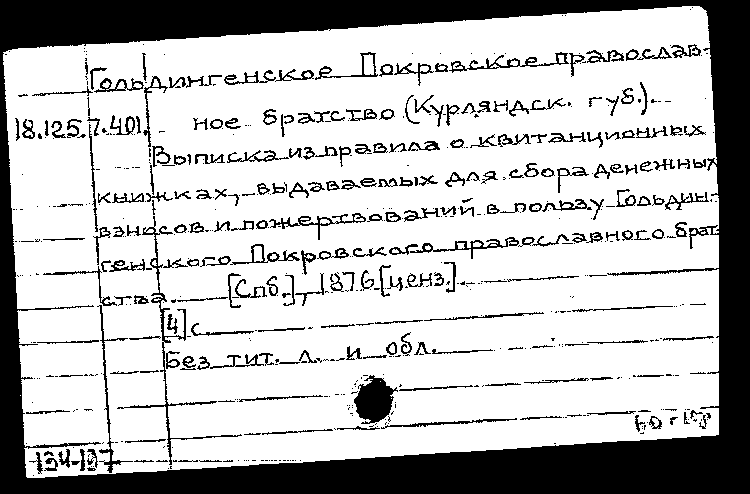 Гольдингенское Покровское православ-
18.125.7.401. ное братство (Курляндск. губ.).
Выписка из правила о квитанционных
книжках, выдаваемых для сбора денежных
взносов и пожертвований в пользу Гольдин-
генского Покровского православного брат-
ства. [Спб.], 1876 [ценз.].
[4] с.
Без тит. л. и обл.
134-197